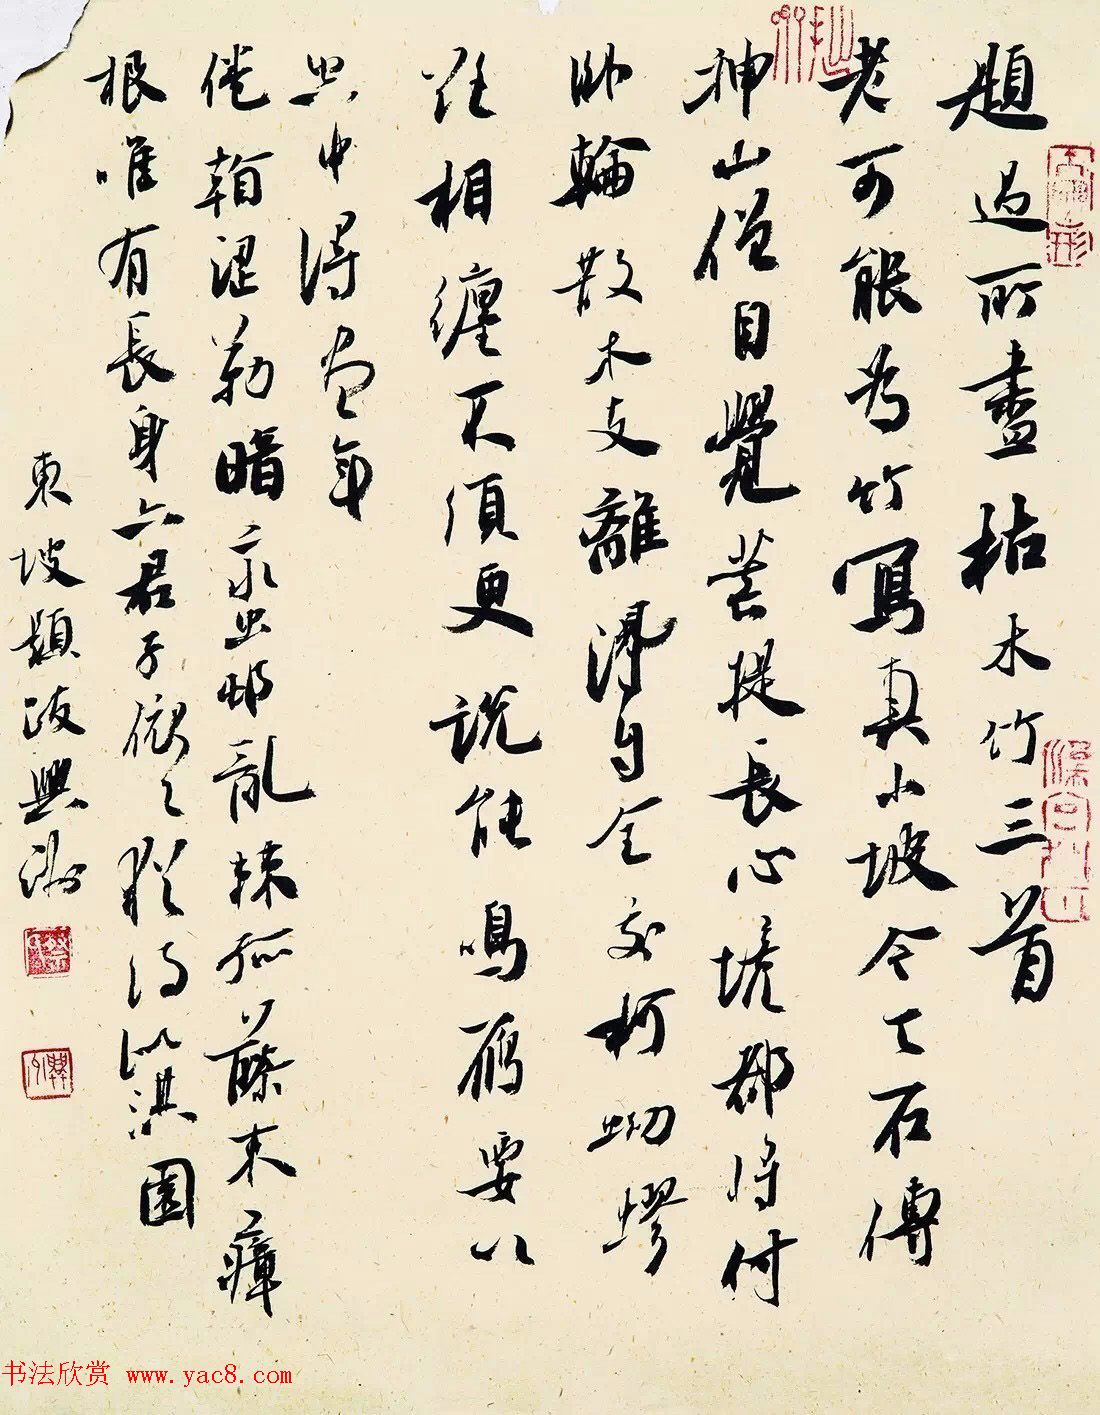 題過所畫枯木竹三首
老可能為竹寫真小坡今与石傳
神山僧自覺菩提長心境都將付
臥輪散木支離得自全交柯蚴蟉
欲相纏不須更說能鳴雁要以
空中得盡年
倦看澀勒暗蠻村亂棘孤藤束瘴
根唯有長身六君子依依猶得似淇園
東坡題跋興洲
书法欣赏 www.yac8.com